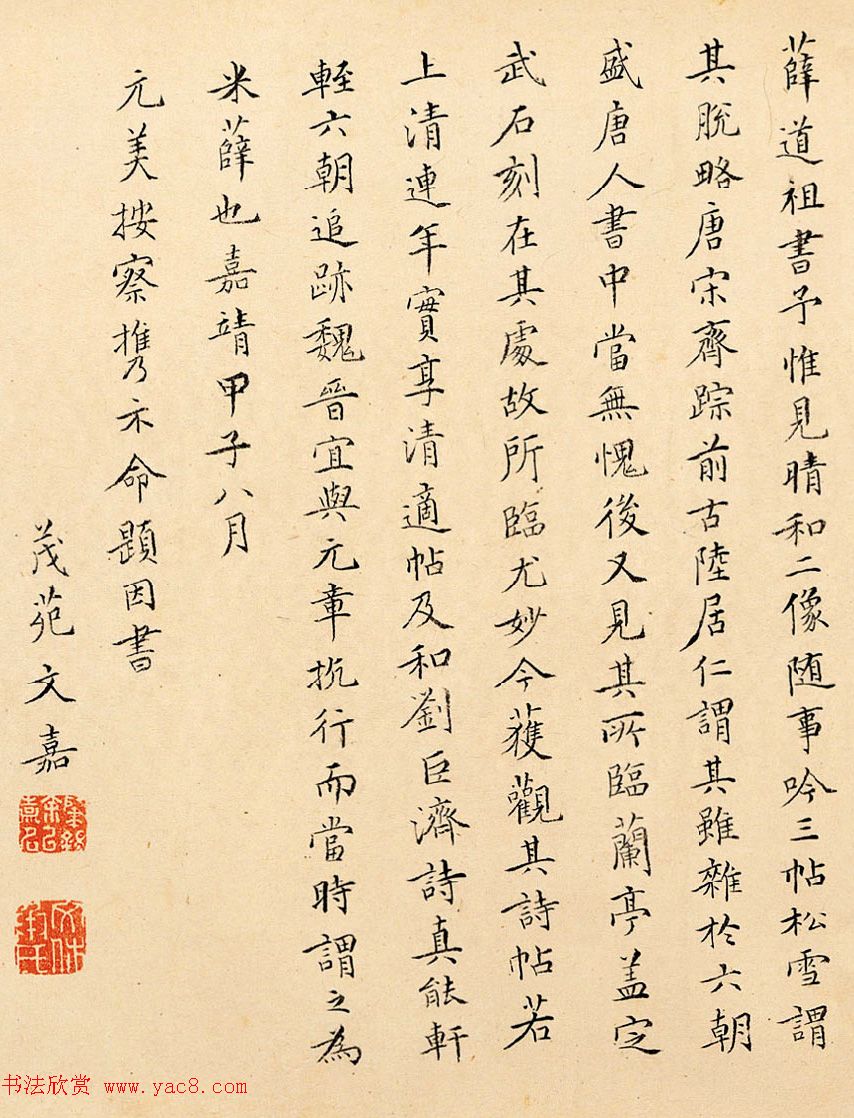 薛道祖書予惟見晴和二像随事吟三帖松雪謂
其脫略唐宋齊踪前古陸居仁謂其雖雜於六朝
盛唐人書中當無愧後又見其所臨蘭亭盖定
武石刻在其處故所臨尤妙今獲觀其詩帖若
上清連年實享清適帖及和劉巨濟詩真能軒
輊六朝追跡魏晉宜與元章抗行而當時謂之為
米薛也嘉靖甲子八月
元美按察攜示命題因書
茂苑文嘉
书法欣赏 www.yac8.com